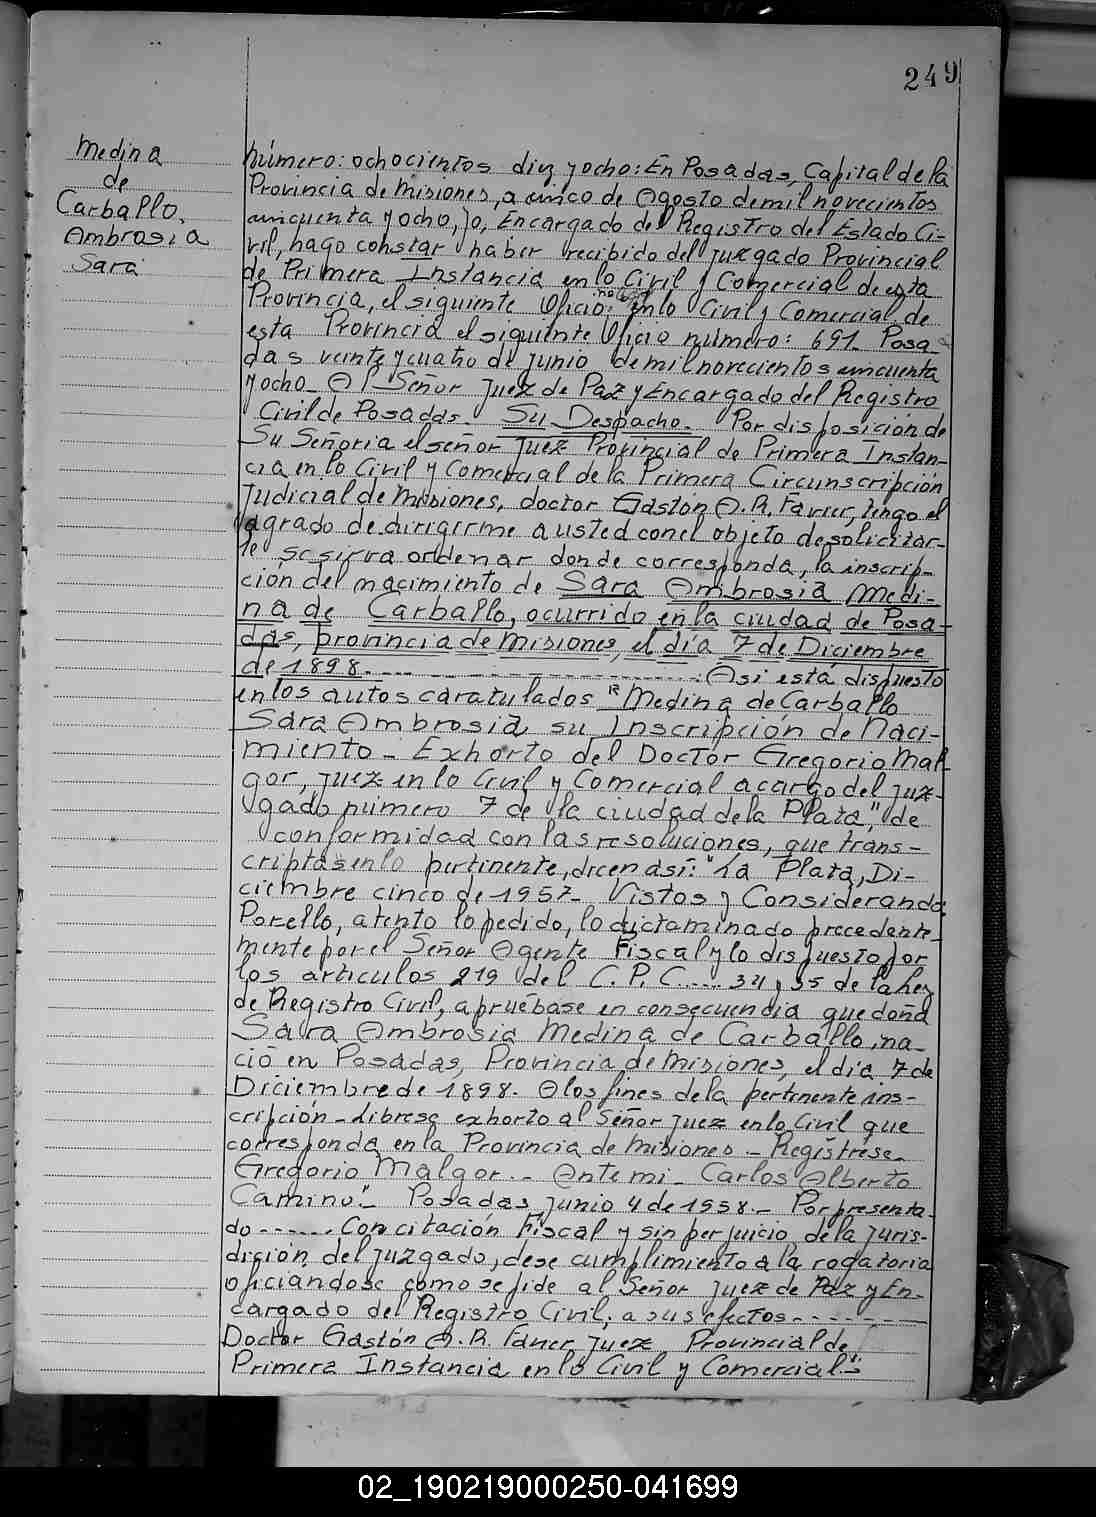 249
Medina
de
Carballo.
Ambrosia
Sara
Número: ochocientos diez y ocho: En Posadas, Capital de la
Provincia de Misiones, a cinco de Agosto de mil novecientos
cincuenta y ocho, yo, Encargado del Registro del Estado Ci-
vil, hago constar haber recibido del Juzgado Provincial
de Primera Instancia en lo Civil y Comercial de esta
Provincia, el siguiente Oficio: en lo Civil y Comercial de
esta Provincia el siguiente Oficio número: 691. Posa-
das veinte y cuatro de junio de mil novecientos cincuenta
y ocho_ Al Señor Juez de Paz y Encargado del Registro
Civil de Posadas. Su Despacho. Por disposición de
Su Señoria el señor Juez Provincial de Primera Instan-
cia en lo Civil y Comercial de la Primera Circunscripción
Judicial de Misiones, doctor Gastón A. R. Favier, tengo el
agrado de dirigirme a usted con el objeto de solicitar-
le se sirva ordenar donde corresponda, la inscrip-
ción del nacimiento de Sara Ambrosia Medi-
na de Carballo, ocurrido en la ciudad de Posa-
das, provincia de Misiones, el día 7 de Diciembre
de 1898. Asi está dispuesto
en los autos caratulados "Medina de Carballo
Sara Ambrosia su Inscripción de Naci-
miento - Exhorto del Doctor Gregorio Mal-
gor, Juez en lo Civil y Comercial a cargo del Juz-
gado número 7 de la ciudad de la Plata", de
conformidad con las resoluciones, que trans-
criptas en lo pertinente, dicen así: "La Plata, Di-
ciembre cinco de 1957- Vistos y Considerando:
Por ello, atento lo pedido, lo dictaminado precedente-
mente por el Señor Agente Fiscal y lo dispuesto por
los artículos 219 del C. P. C. .... 34 y 35 de la ley
de Registro Civil, apruébase en consecuencia que doña
Sara Ambrosia Medina de Carballo, na-
ció en Posadas, Provincia de Misiones, el día 7 de
Diciembre de 1898. A los fines de la pertinente ins-
cripción - Librese exhorto al Señor Juez en lo Civil que
corresponda en la Provincia de Misiones - Regístrese.
Gregorio Malgor.- Ante mi. Carlos Alberto
Camino".- Posadas, Junio 4 de 1958.- Por presenta-
do ...... Con citación Fiscal y sin perjuicio de la Juris-
dición del Juzgado, dese cumplimiento a la rogatoria
oficiandose como se pide al Señor Juez de Paz y En-
cargado del Registro Civil, a sus efectos --------
Doctor Gastón A. R. Favier Juez Provincial de
Primera Instancia en lo Civil y Comercial".-
02_190219000250-041699